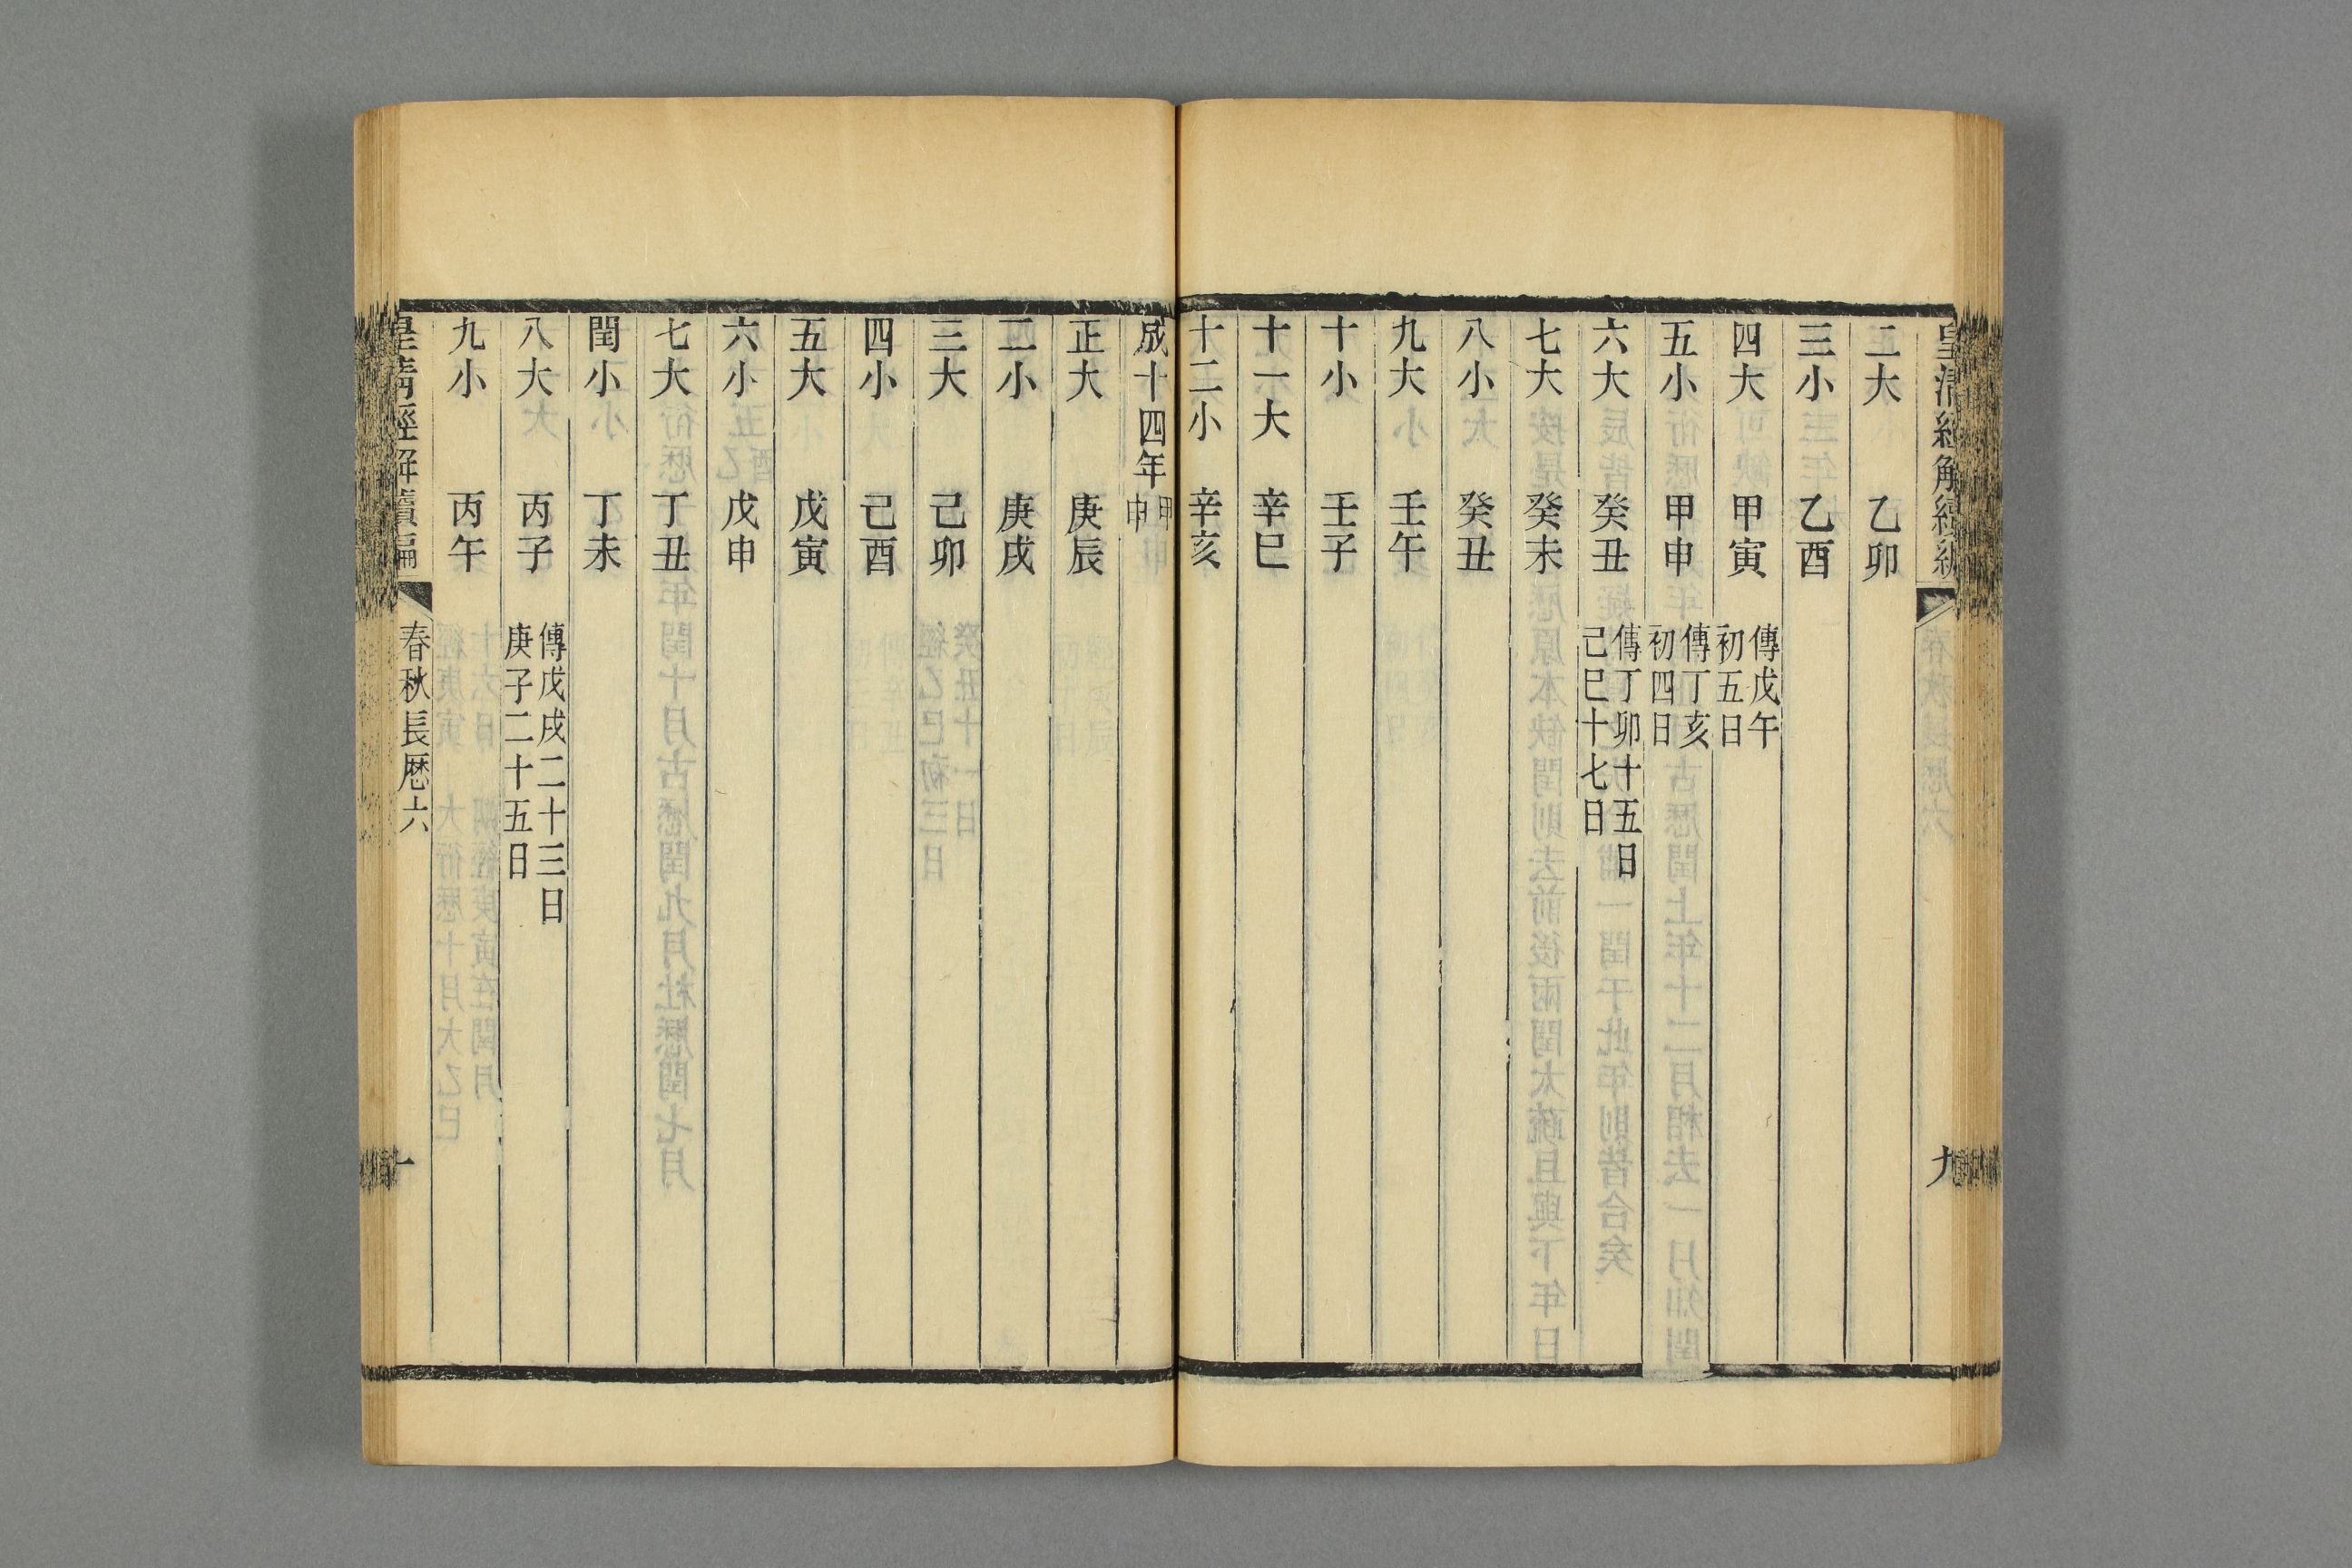 皇清經解續編 春秋長厯六 九
二大 乙卯
三小 乙酉
四大 甲寅 傳戊午
初五日
五小 甲申 傳丁亥
初四日
六大 癸丑 傳丁卯十五日
己巳十七日
七大 癸未
八小 癸丑
九大 壬午
十小 壬子
十一大 辛巳
十二小 辛亥
成十四年甲申
正大 庚辰
二小 庚戌
三大 己卯
四小 己酉
五大 戊寅
六小 戊申
七大 丁丑
閏小 丁未
八大 丙子 傳戊戌二十三日
庚子二十五日
九小 丙午
皇清經解續編 春秋長厯六 十